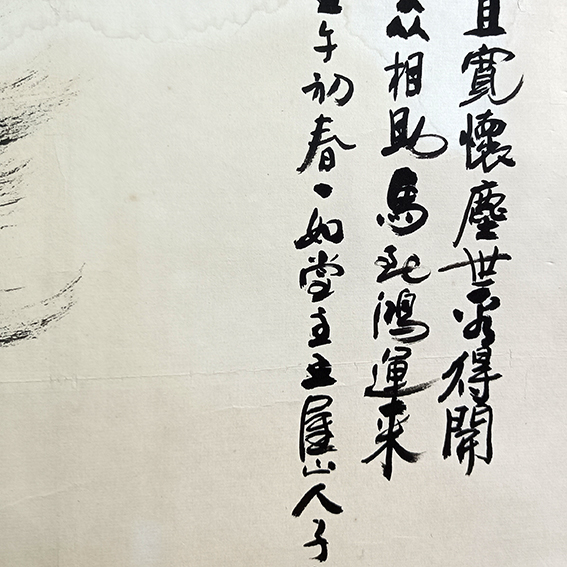 且寬懷塵世看得開
众相助馬到鴻運來
午初春、如堂主王屋山人子